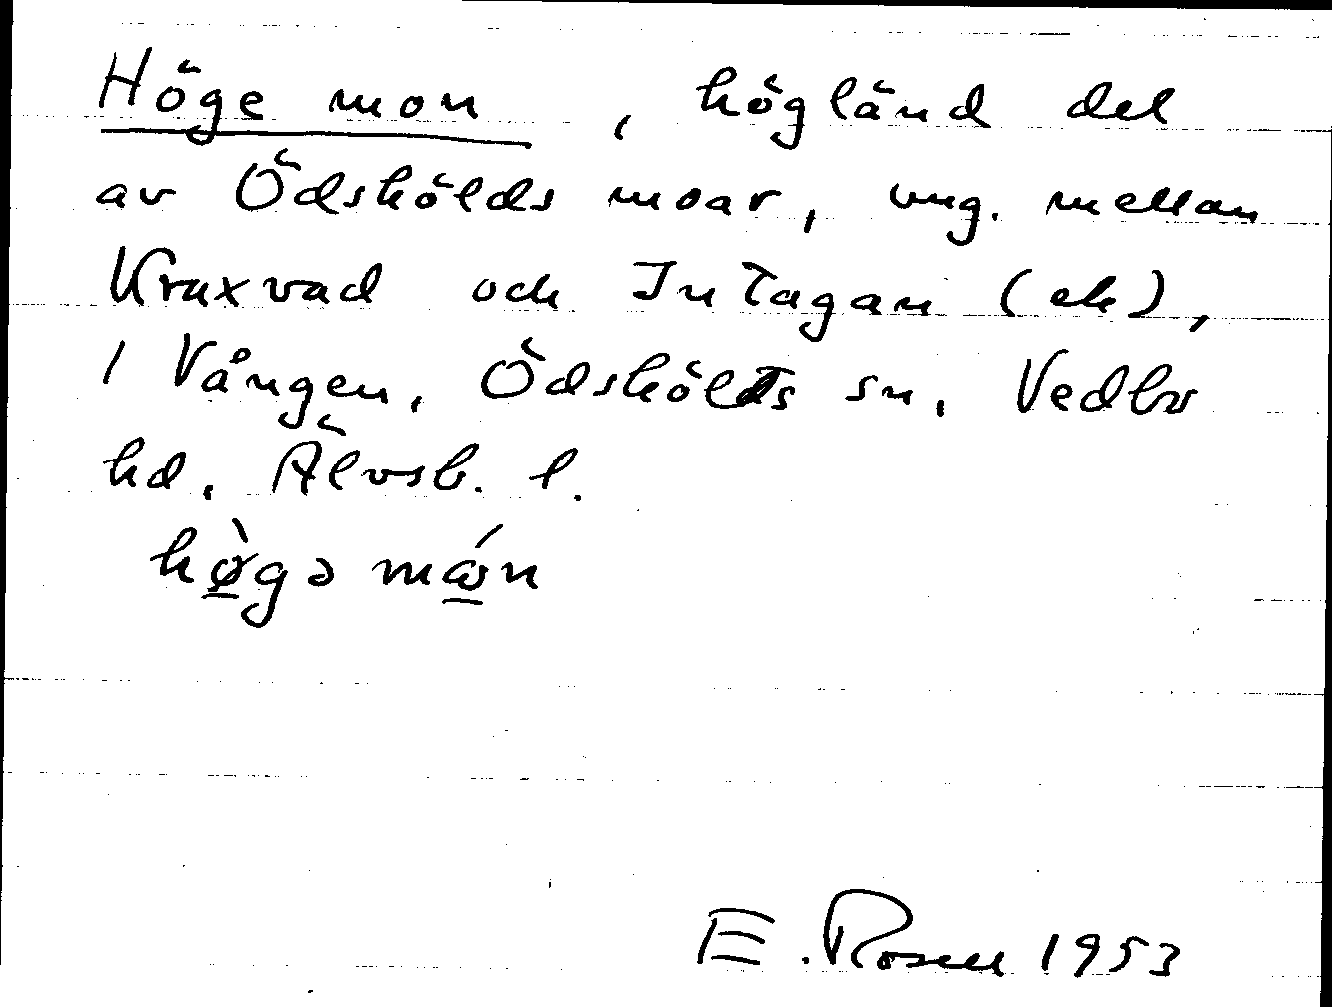 Höge mon, högländ del
av Ödskölds moar, ung. mellan
Kruxvad och Intagan (ek),
1 Vången, Ödskölds sn, Vedbo
hd, Älvsb. l.
hø̀gə mɷ́n
E. Rosell 1953